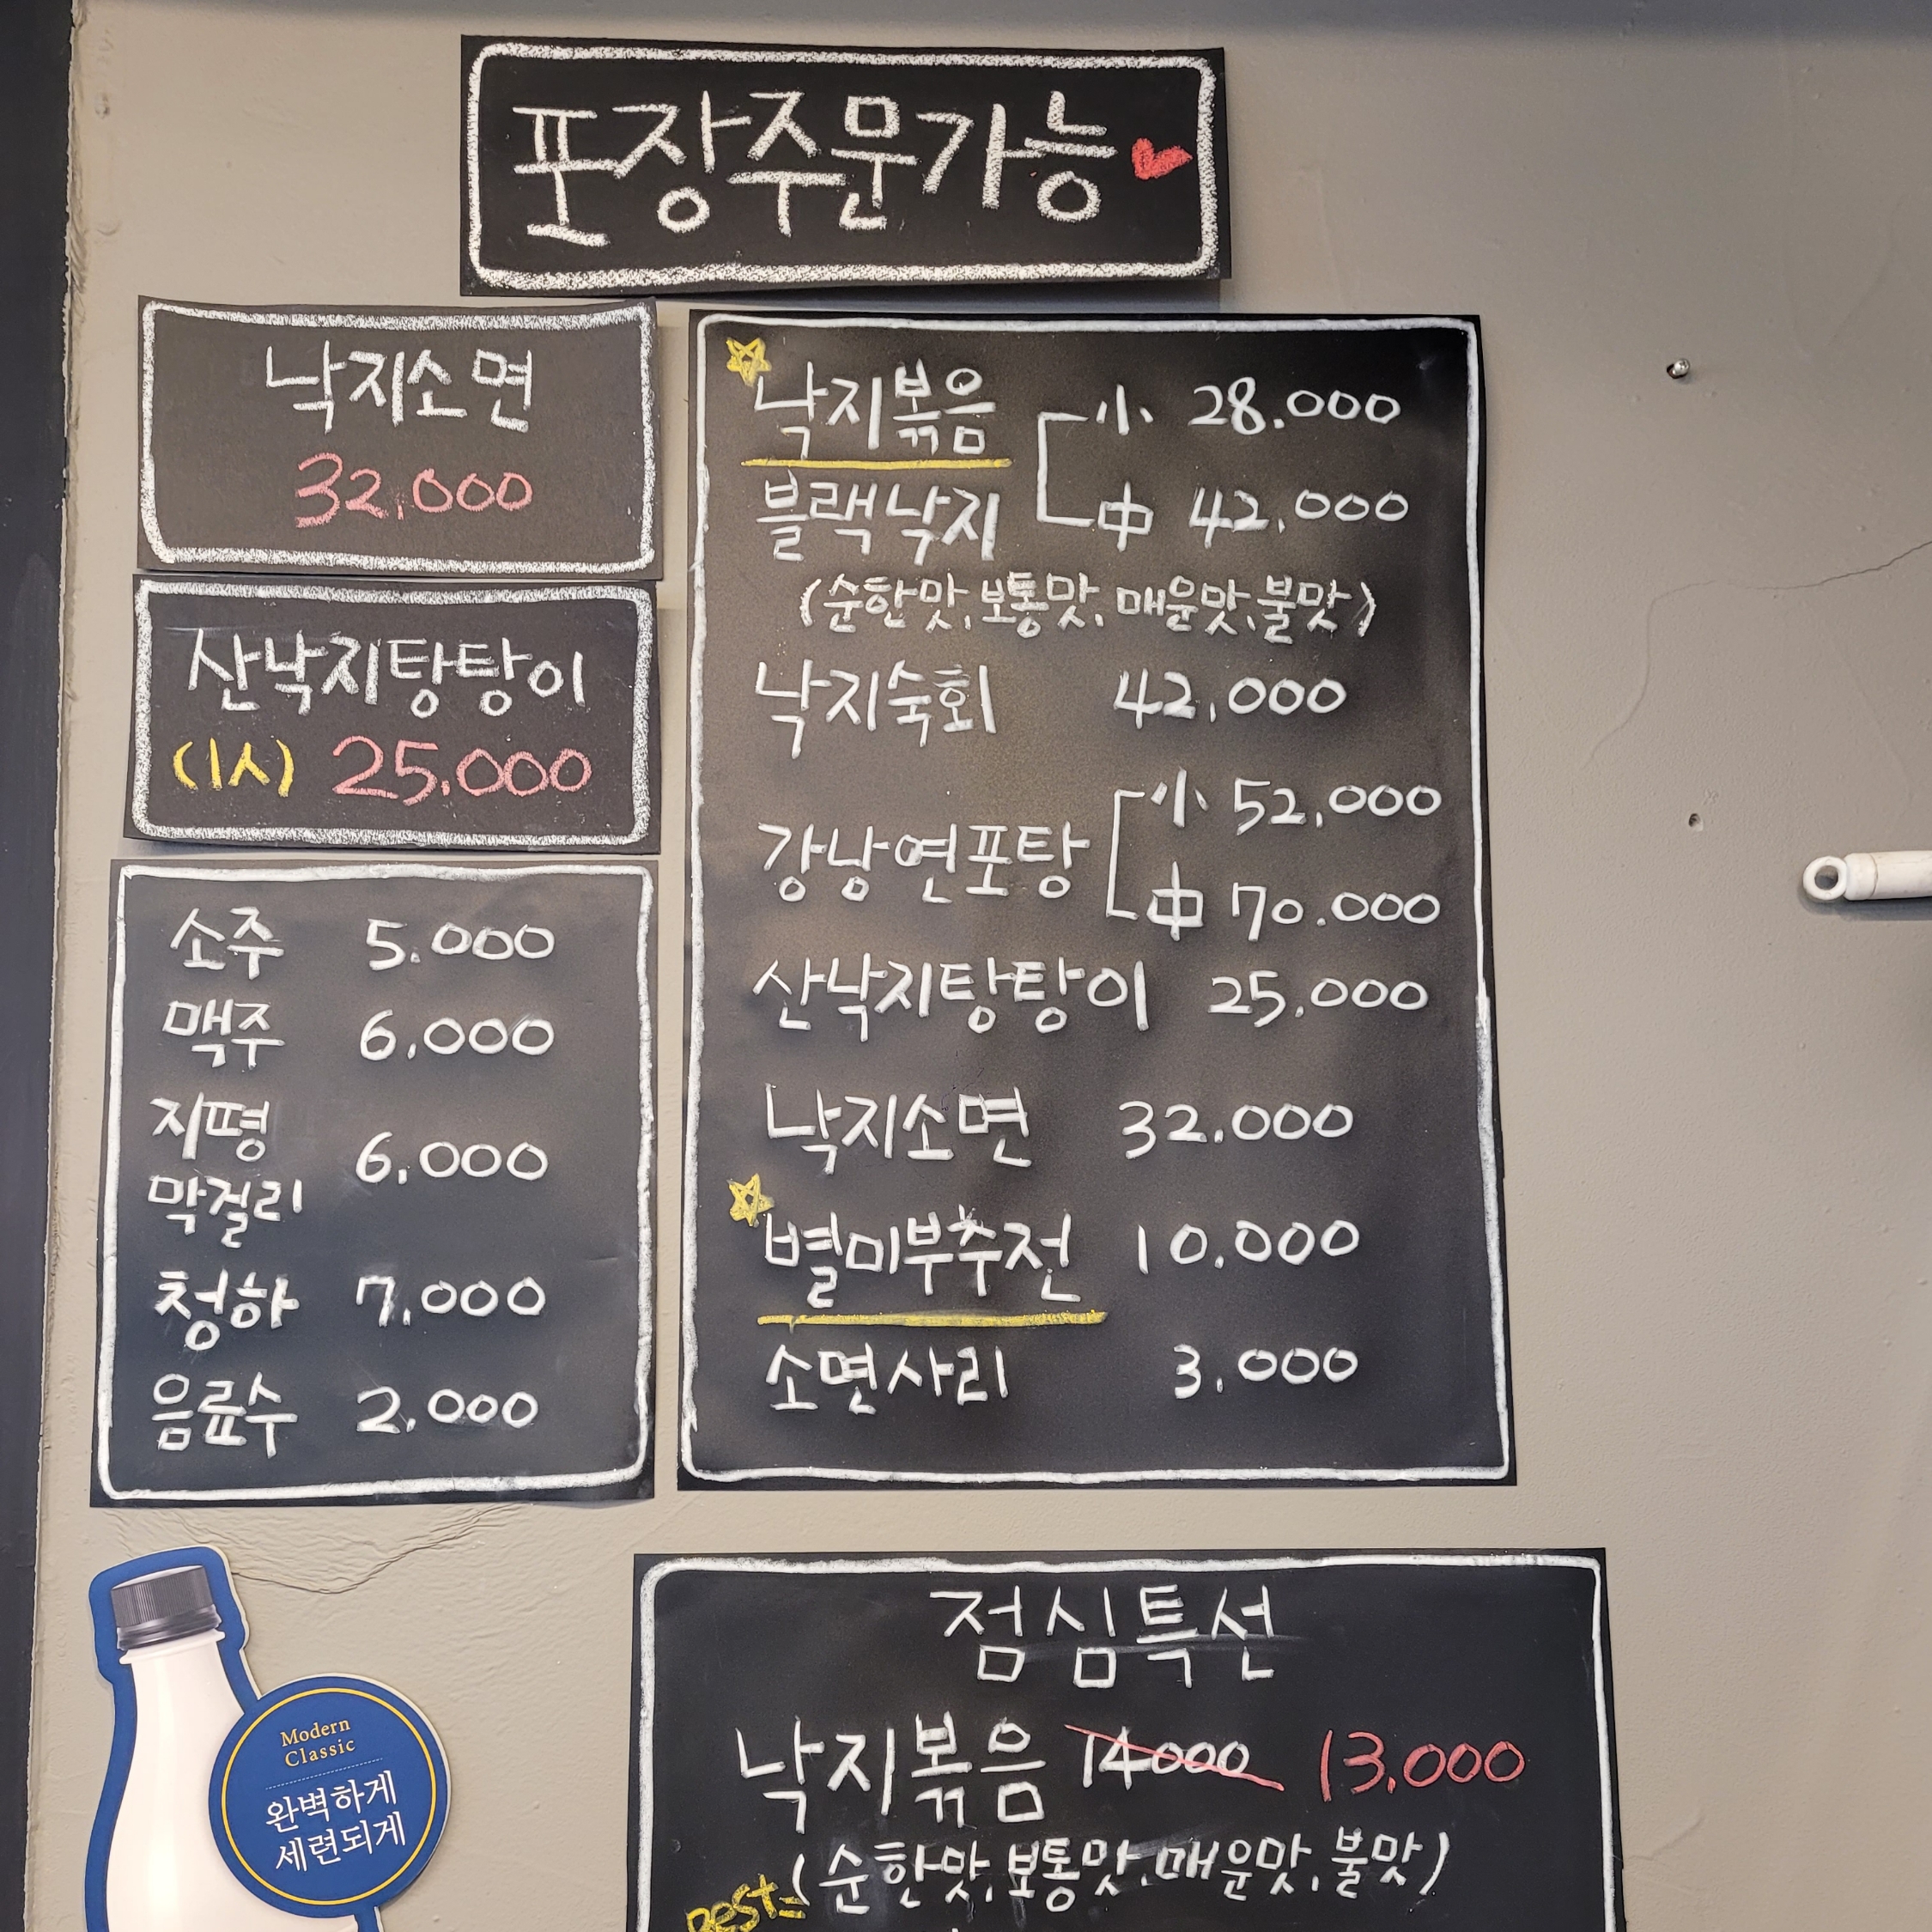 포장주문가능
낙지소면
32,000
산낙지탕탕이
(1人) 25,000
소주 5.000
맥주 6,000
지평
막걸리 6,000
청하 7,000
음료수 2,000
낙지볶음 小 28.000
블랙낙지 中 42,000
(순한맛,보통맛,매운맛,불맛)
낙지숙회 42,000
강낭연포탕 小 52,000
中 70.000
산낙지탕탕이 25,000
낙지소면 32.000
별미부추전 10.000
소면사리 3.000
점심특선
낙지볶음 14000 13,000
(순한맛,보통맛,매운맛,불맛)
BEST
Modern
Classic
완벽하게
세련되게